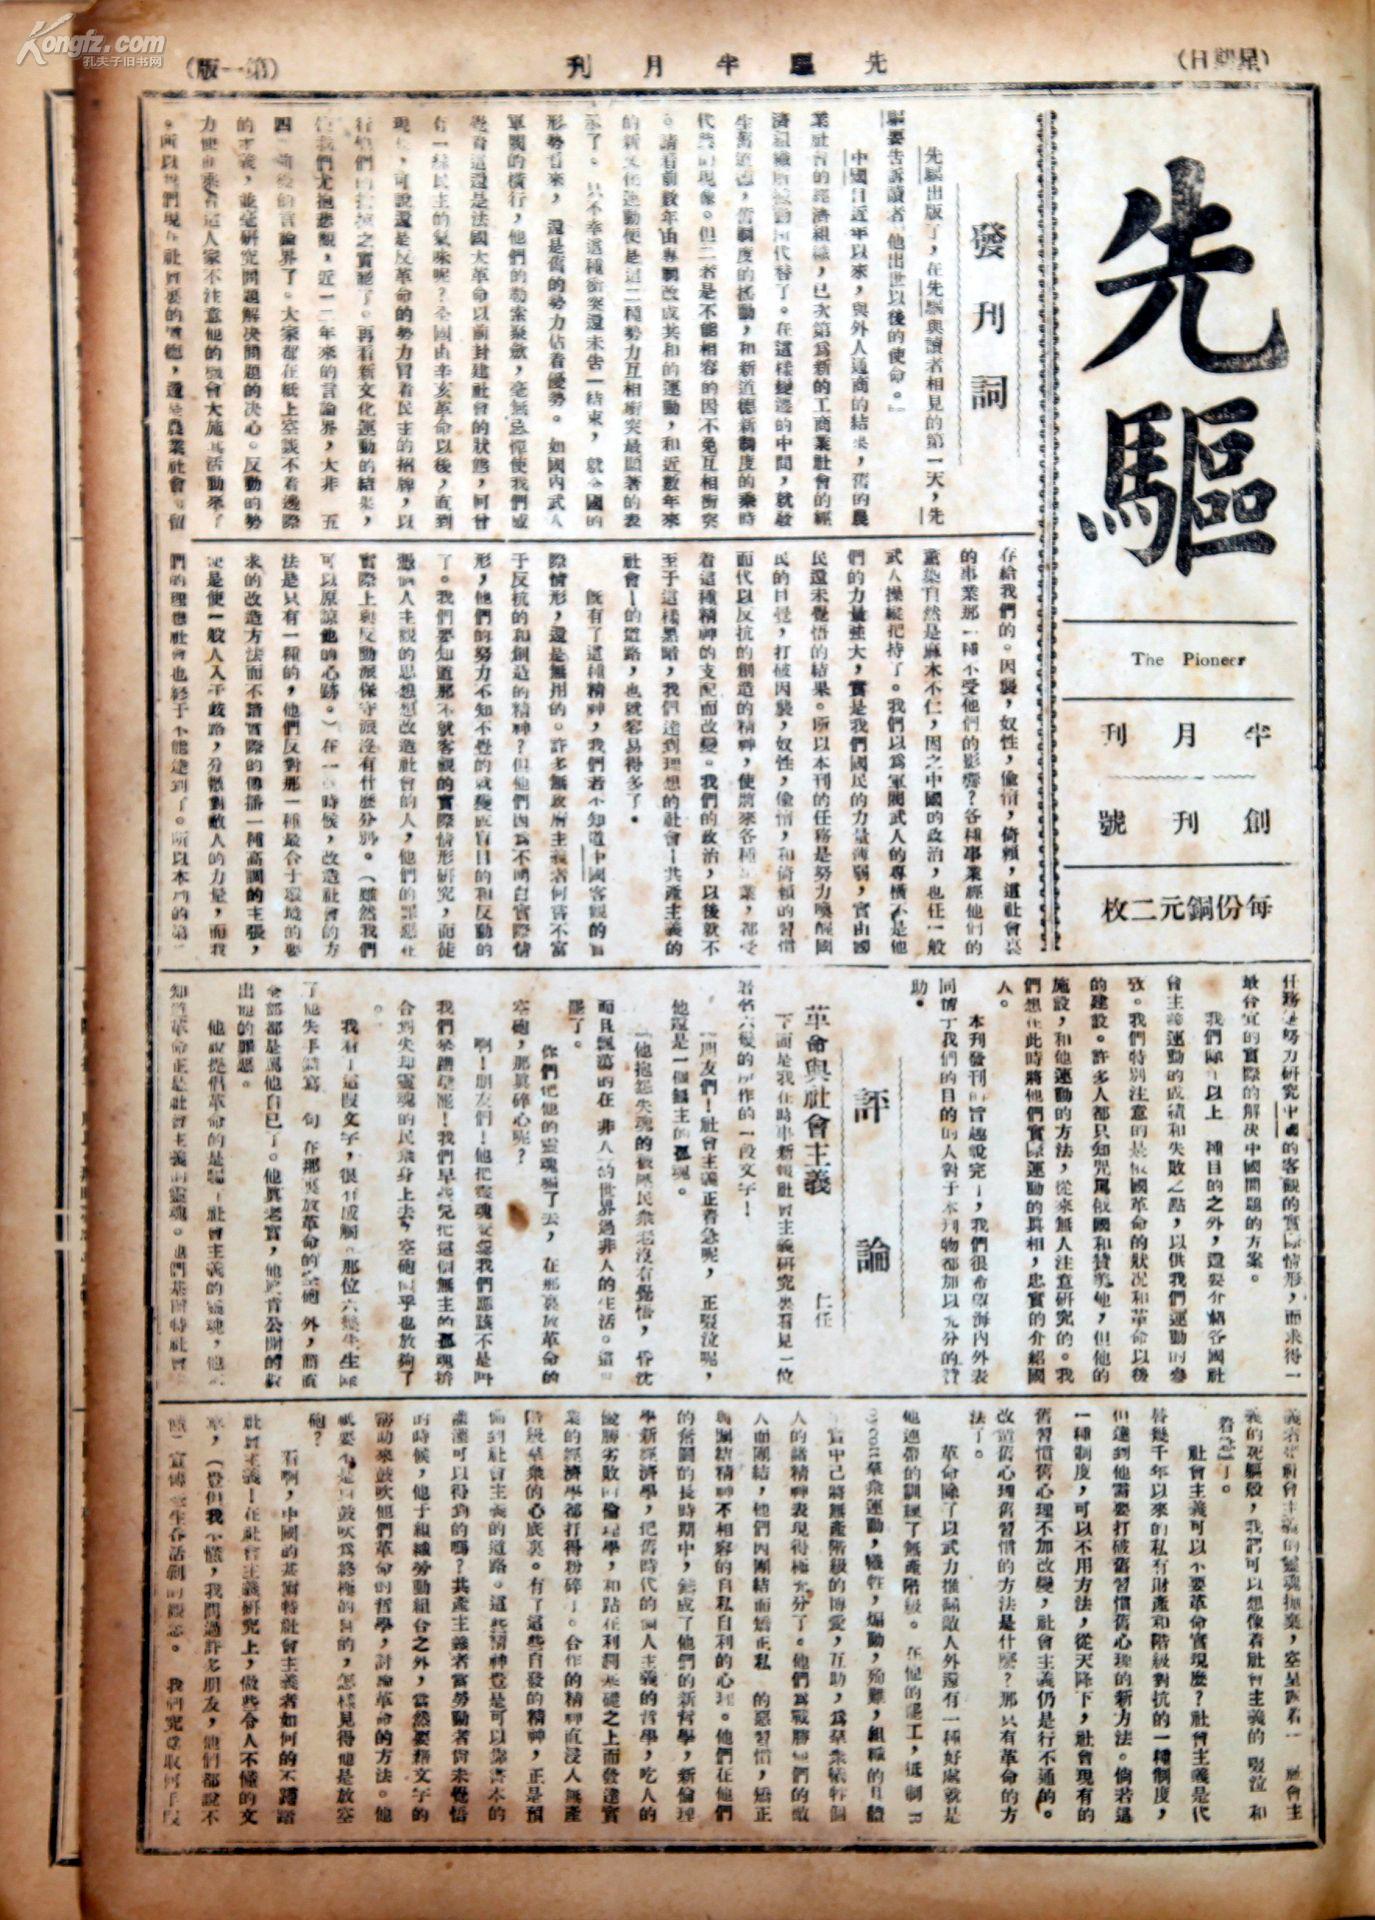 Kongfz.com
孔夫子旧书网
(星期日)
先驅半月刊
(第一版)
先驅
The Pioneer
半月刊
創刊號
每份銅元二枚
發刊詞
先驅出版了,在先驅與讀者相見的第一天,先
驅要告訴讀者『他出世以後的使命。』
中國自近年以來,與外人通商的結果,舊的農
業社會的經濟組織,已次第爲新的工商業社會的經
濟組織所代替了。在這樣變遷的中間,就啟
生舊道德,舊制度的搖動,和新道德新制度的乘時
代興的現象。但二者是不能相容的因不免互相衝突
。請看前數年由專制改成共和的運動,和近數年來
的新文化運動便是這二種勢力互相衝突最顯著的表
示了。只不幸這種衝突還未告一結束,就全國的
形勢看來,還是舊的勢力佔着優勢。如國內武人
軍閥的橫行,他們的勒索聚斂,毫無忌憚使我們感
覺着這還是法國大革命以前封建社會的狀態,何曾
有一絲民主的氣味呢?全國由辛亥革命以後,直到
現在,可說還是反革命的勢力冒着民主的招牌,以
行他們的之實罷了。再看新文化運動的結果,
我們尤抱悲觀,近一二年來的言論界,大非 五
四 後的言論界了。大家都在紙上空談不着邊際
的主義,並毫研究問題解決問題的決心。反動的勢
力便乘着這人家不注意他的機會大施其活動來了
。所以我們現在社會裏的道德,還是農業社會 留
存給我們的。因襲,奴性,偷惰,倚賴,這社會裏
的事業那一種不受他們的影響?各種事業經他們的
薰染自然是麻木不仁,因之中國的政治,也任一般
武人操縱把持了。我們以爲軍閥武人的專橫不是他
們的力量強大,實是我們國民的力量薄弱,實由國
民還未覺悟的結果。所以本刊的任務是努力喚醒國
民的自覺,打破因襲,奴性,偷惰,和倚賴的習慣
而代以反抗的創造的精神,使將來各種事業,都受
着這種精神的支配而改變。我們的政治,以後就不
至于這樣黑暗,我們達到理想的社會—共產主義的
社會—的道路,也就容易得多了。
既有了這種精神,我們若不知道中國客觀的實
際情形,還是無用的。許多無政府主義者何嘗不富
于反抗的和創造的精神?但他們因爲不明白實際情
形,他們的努力不知不覺的就變成盲目的和反動的
了。我們要知道那不就客觀的實際情形研究,而徒
憑個人主觀的思想想改造社會的人,他們的罪惡在
實際上與反動派保守派沒有什麼分別。(雖然我們
可以原諒他的心跡。)在一個時候,改造社會的方
法是只有一種的,他們反對那一種最合于環境的要
求的改造方法而不諳實際的傳播一種高調的主張,
便是使一般人入于歧路,分散對敵人的力量,而我
們的理想社會也終于不能達到了。所以本刊的第二
任務是努力研究中國的客觀的實際情形,而求得一
最合宜的實際的解決中國問題的方案。
我們除了以上 種目的之外,還要介紹各國社
會主義運動的成績和失敗之點,以供我們運動的參
攷。我們特別注意的是俄國革命的狀況和革命以後
的建設。許多人都只知咒罵俄國和贊美他,但他的
施設,和他運動的方法,從來無人注意研究的。我
們想在此時將他們實際運動的眞相,忠實的介紹國
人。
本刊發刊的旨趣說完了,我們很希望海內外表
同情于我們的目的的人對于本刊物都加以充分的贊
助。
評論
革命與社會主義
仁任
下面是我在時事新報社會主義研究裏看見一位
署名六幾的所作的一段文字!
『朋友們!社會主義正着急呢,正啜泣呢,
他還是一個無主的孤魂。
『他抱怨失魂的被壓民衆老沒有覺悟,昏沈
而且飄蕩的在 非人 的世界過非人的生活。這
罷了。
你們把他的靈魂騙了去,在那裏放革命的
空砲,那眞碎心呢?
啊!朋友們!他把靈魂交給我們應該不是叫
我們來蹧蹋罷!我們早些兒把這個無主的孤魂拚
合到失却靈魂的民衆身上去,空砲似乎也放夠了
。』
我看了這段文字,很有感觸。那位六幾先生除
了他失手錯寫 句 在那裏放革命的空砲 外,簡直
全部都是罵他自己了。他眞老實,他竟肯公開的報
出他的罪惡。
他說提倡革命的是騙了社會主義的靈魂,他不
知道革命正是社會主義的靈魂。他們基爾特社會主
義者將社會主義的靈魂拋棄,空呈四着一 社會主
義的死驅殼,我們可以想像着社會主義的 啜泣 和
着急 了。
社會主義可以不要革命實現麼?社會主義是代
替幾千年以來的私有財產和階級對抗的一種制度,
但達到他需要打破舊習慣舊心理的新方法。倘若這
一種制度,可以不用方法,從天降下,社會現有的
舊習慣舊心理不加改變,社會主義仍是行不通的。
改這舊心理舊習慣的方法是什麼?那只有革命的方
法了。
革命除了以武力推翻敵人外還有一種好處就是
他連帶的訓練了無產階級。在他的罷工,抵制 B
oycott羣衆運動,犧牲,煽動,殉難,組織的具體
事實中已將無產階級的博愛,互助,爲羣衆犧牲個
人的諸精神表現得極充分了。他們爲戰勝他們的敵
人而團結,他們因團結而矯正私 的惡習慣,矯正
與團結精神不相容的自私自利的心理。他們在他們
的奮鬬的長時期中,鑄成了他們的新哲學,新倫理
學新經濟學,把舊時代的個人主義的哲學,吃人的
優勝劣敗的倫理學,和站在利潤基礎之上而發達實
業的經濟學都打得粉碎了。合作的精神直浸入無產
階級羣衆的心底裏。有了這些自發的精神,正是預
備到社會主義的道路。這些精神豈是可以靠書本的
講演可以得到的嗎?共產主義者當勞動者尚未覺悟
的時候,他于組織勞動組合之外,當然要藉文字的
幫助來鼓吹他們革命的哲學,討論革命的方法。他
祇要不是以鼓吹爲終極的目的,怎樣見得他是放空
砲?
看啊,中國的基爾特社會主義者如何的不躊躇
社會主義!在社會主義研究上,做些令人不懂的文
章,(豈但我不懂,我問過許多朋友,他們都說不
懂)宣傳 生吞活剝的觀念。我們究竟取何手段